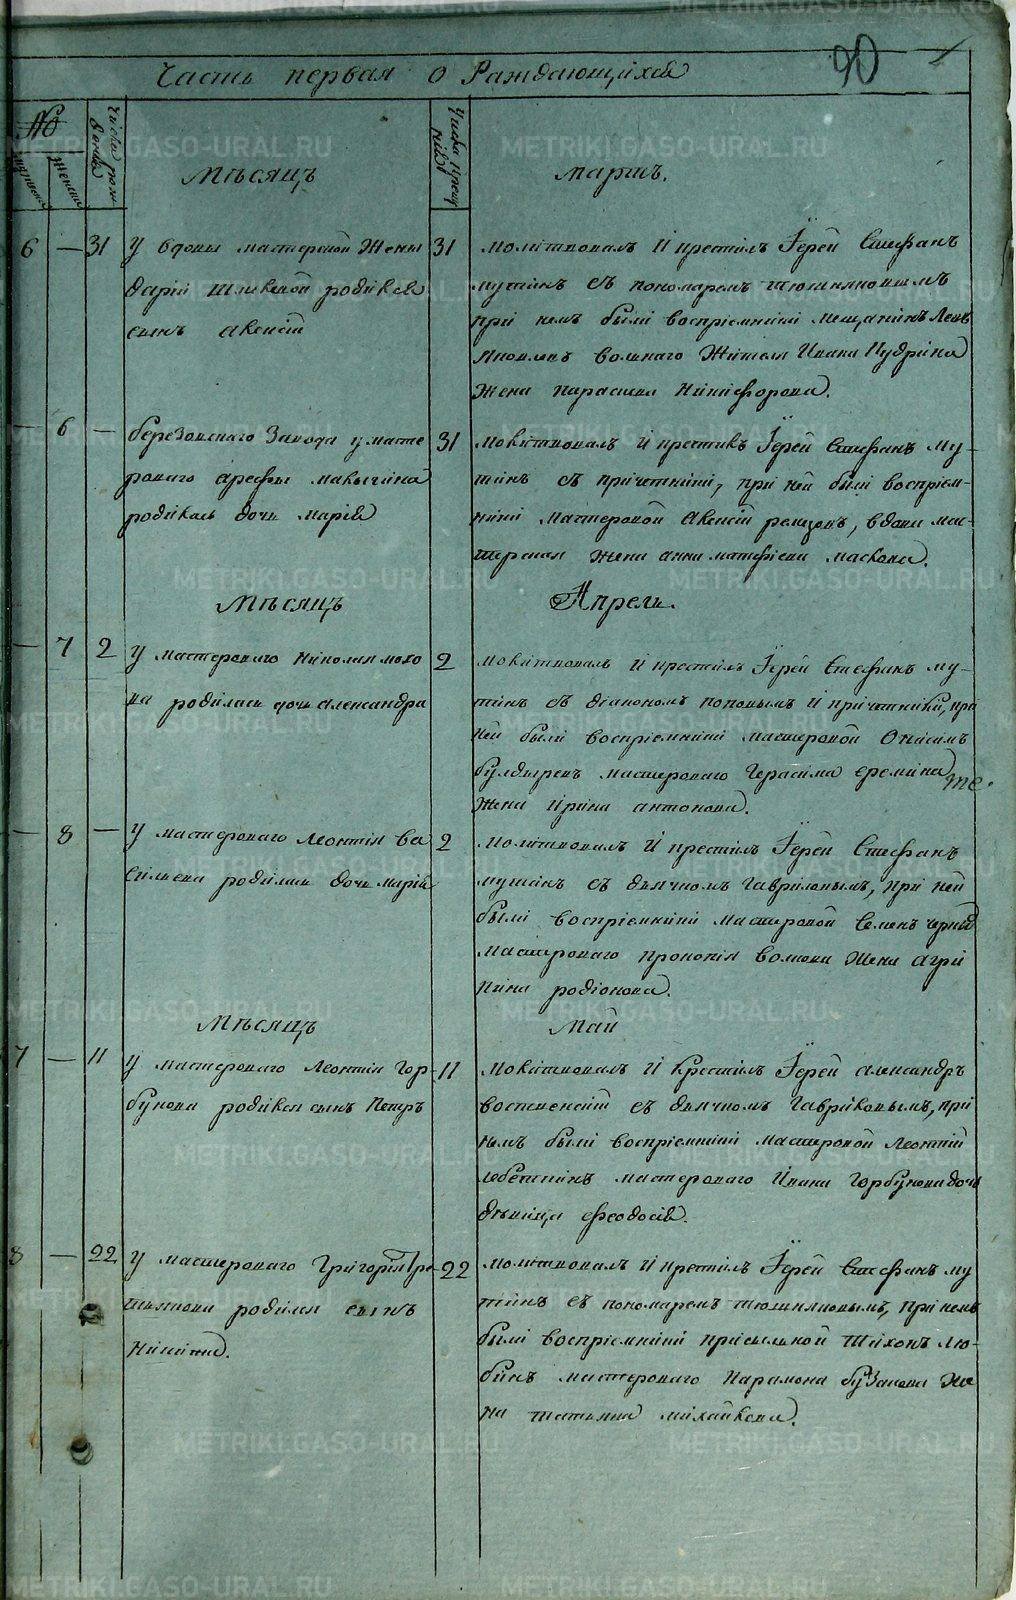 90
Часть первая о Раждающихся
№
Мѣсяцъ
Мартъ.
6 — 31 У вдовы мастерской жены
дарьи родился
сынъ Алексій
31 молитвовалъ и крестилъ Іерей Стефанъ
мутинъ съ пономаремъ
при немъ были воспріемники мещанинъ Левъ
Яковлевъ вольнаго жителя Ивана Кудрина
жена Параскева Никифорова.
— 6 — березовскаго Завода у масте-
роваго арефы
родилась дочь марія
31 молитвовалъ и крестилъ Іерей Стефанъ му-
тинъ съ причетники, при ней были воспріем-
ники мастеровой Алексій вдова мас-
терская жена анна матфѣева
Мѣсяцъ
Апрель.
— 7 2 У мастероваго николая мохо
ва родилась дочь александра
2 молитвовалъ и крестилъ Іерей Стефанъ му-
тинъ съ діакономъ поповымъ и причетники, при
ней были воспріемники мастеровой Онисимъ
булдыревъ мастероваго Герасима еремина
жена ирина антонова.
— 8 — У мастероваго Леонтія Ва
сильева родилась дочь марія
2 молитвовалъ и крестилъ Іерей Стефанъ
мутинъ съ дьячкомъ гавриловымъ, при ней
были воспріемники мастеровой Семенъ
мастероваго прокопія волкова жена агри
пина родіонова.
Мѣсяцъ
Май
7 — 11 У мастероваго Леонтія Гор-
бунова родился сынъ Петръ
11 молитвовалъ и Крестилъ Іерей александръ
съ дьячкомъ гавриловымъ, при
немъ были воспріемники мастеровой Леонтій
мастероваго Ивана Горбунова дочь
дѣвица феодосія.
8 — 22 У мастероваго Григорія Тре
тьякова родился сынъ
Никита.
22 молитвовалъ и крестилъ Іерей Стефанъ му
тинъ съ пономаремъ при немъ
были воспріемники присыльной Тихонъ лю-
бинъ мастероваго Парамона бузанова же
на татьяна михайлова.
METRIKI.GASO-URAL.RU